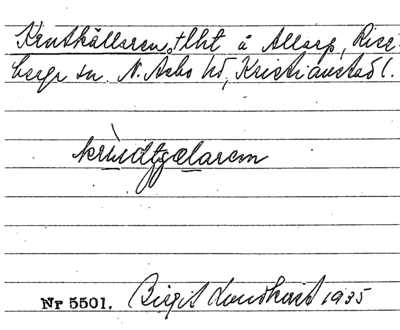 Krutkällaren, tlht å Allarp, Rise-
berga sn. N. Åsbo hd, Kristianstad l.
krùdtjælaren
Nr 5501. Birgit Lundkvist 1935